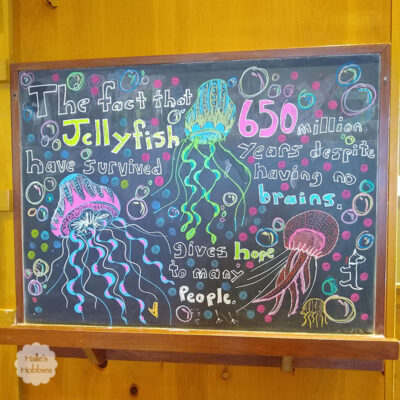 The fact that
Jellyfish
have survived
650 million
years despite
having no
brains.
gives hope
to many
People.
Halle's
Hobbies